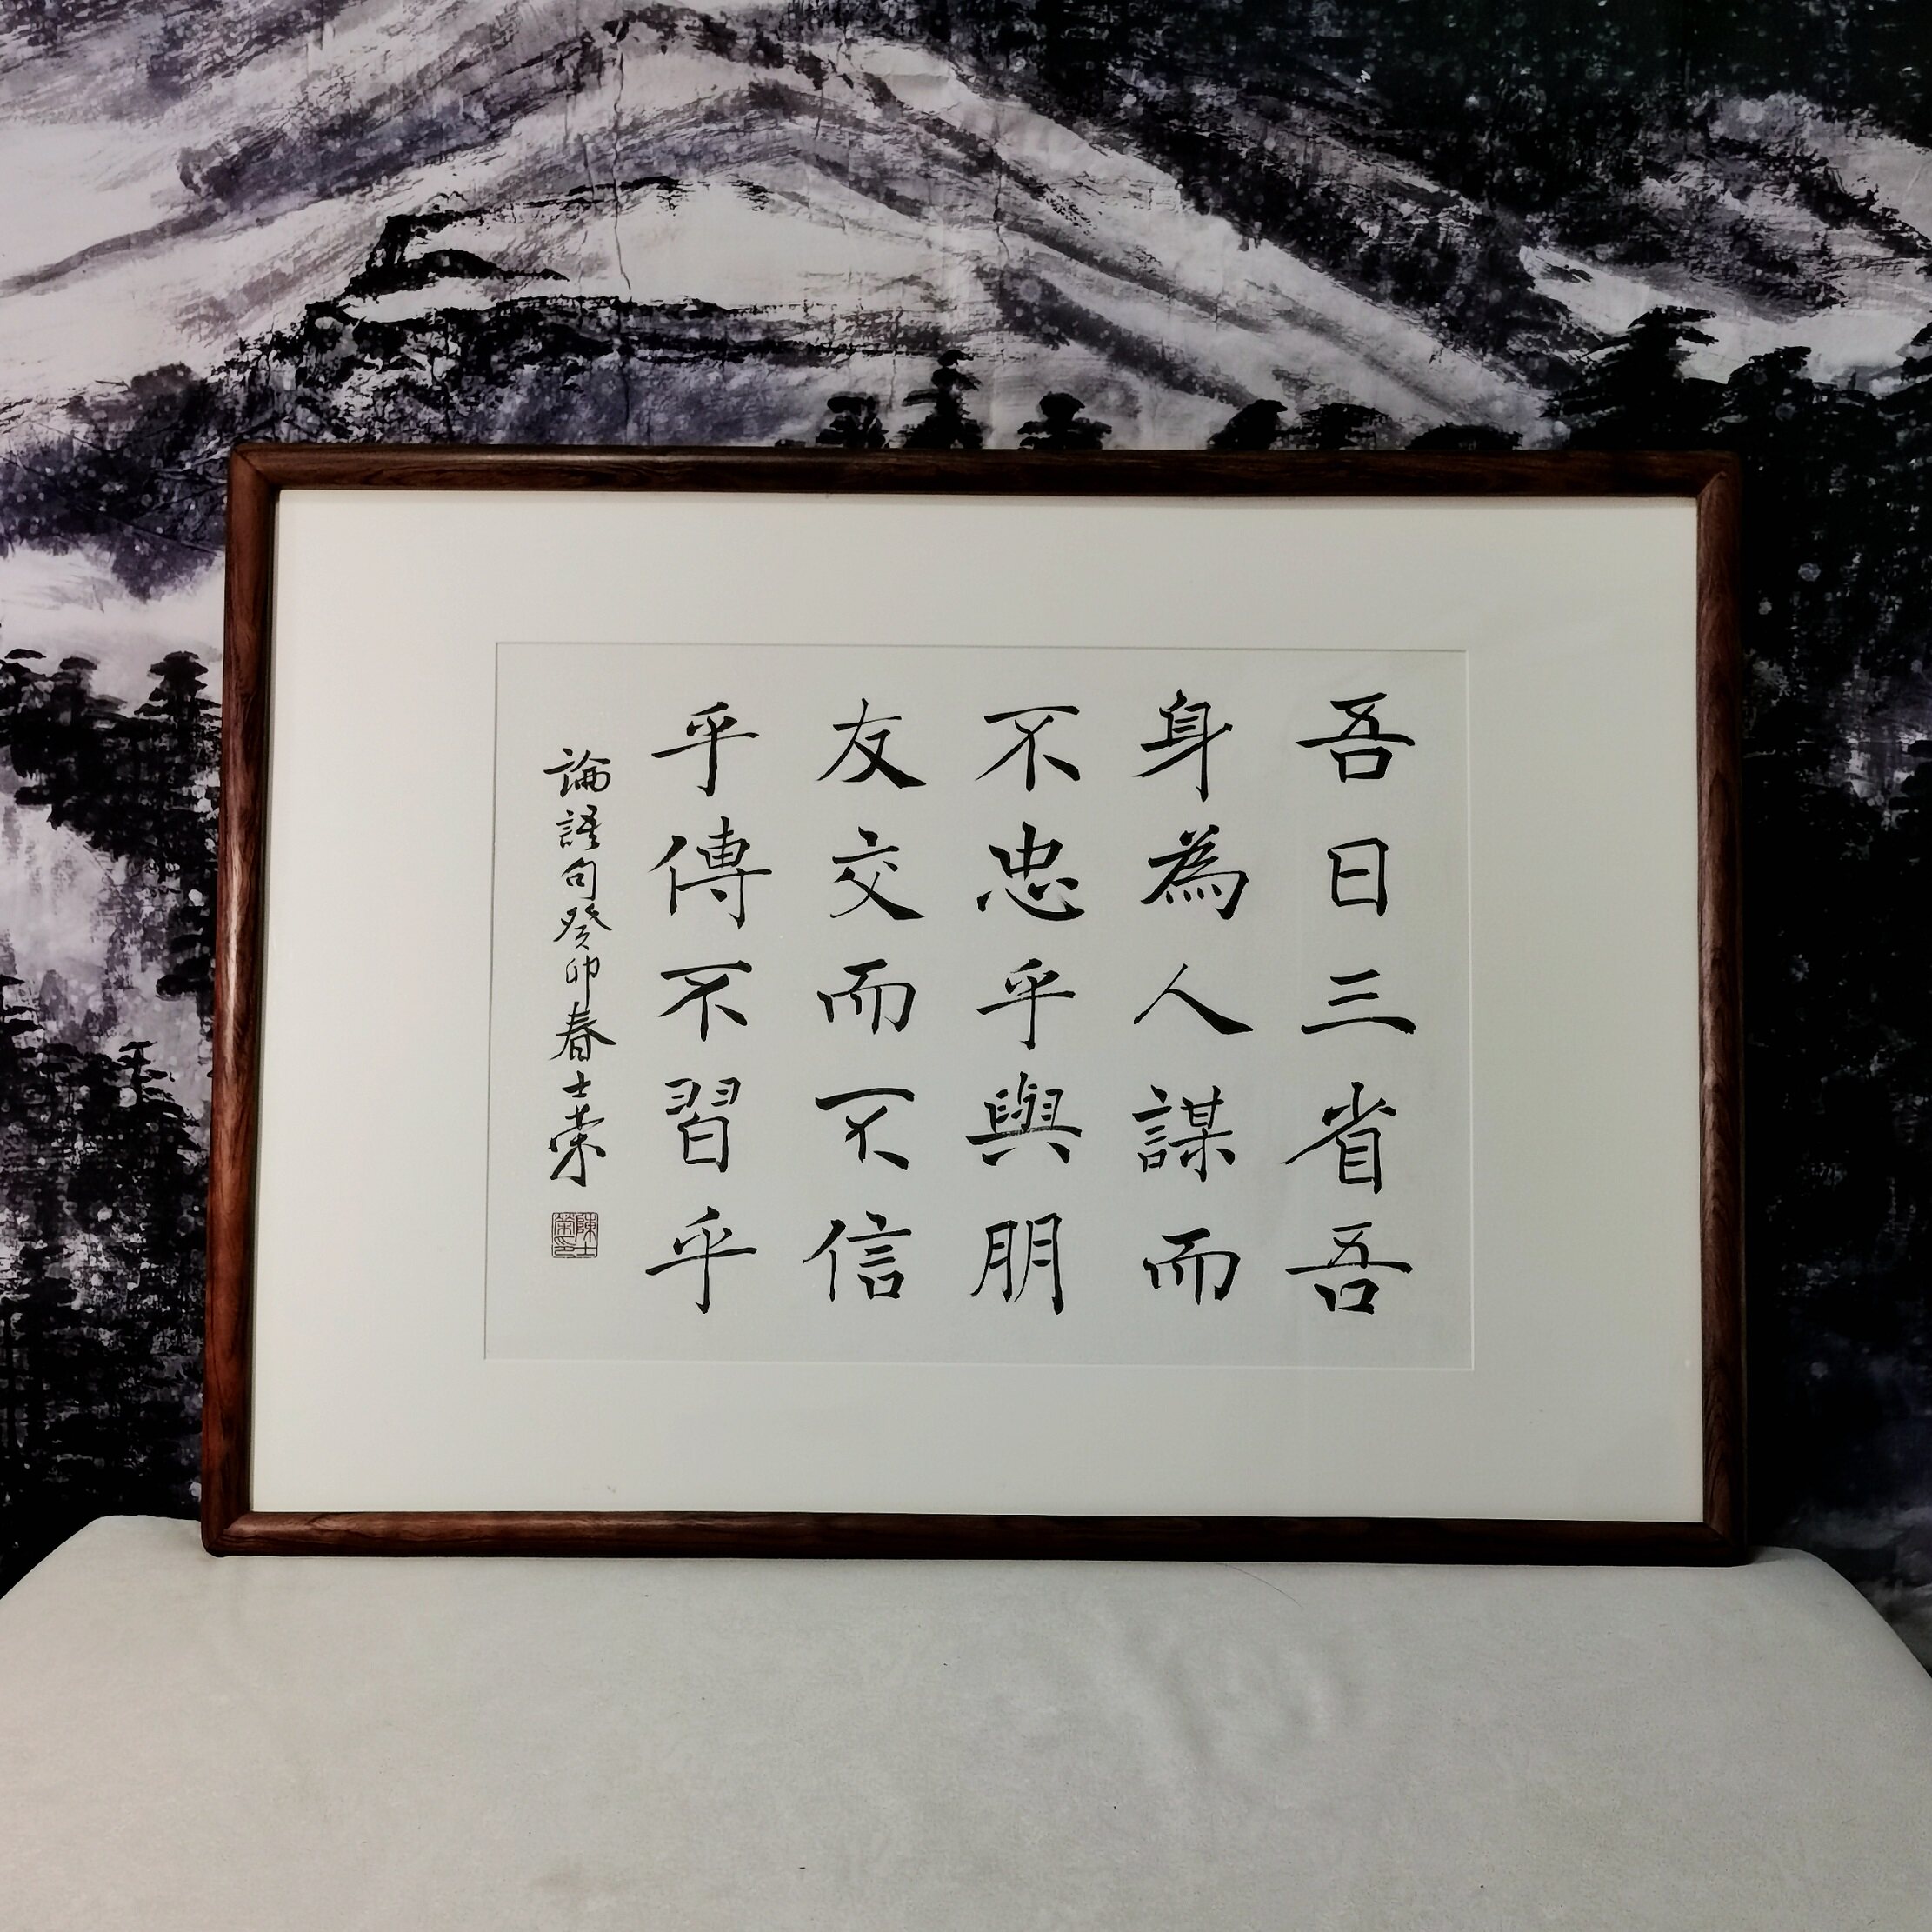 吾日三省吾
身為人謀而
不忠乎與朋
友交而不信
乎傳不習乎
論語句癸卯春士榮
陳士榮印